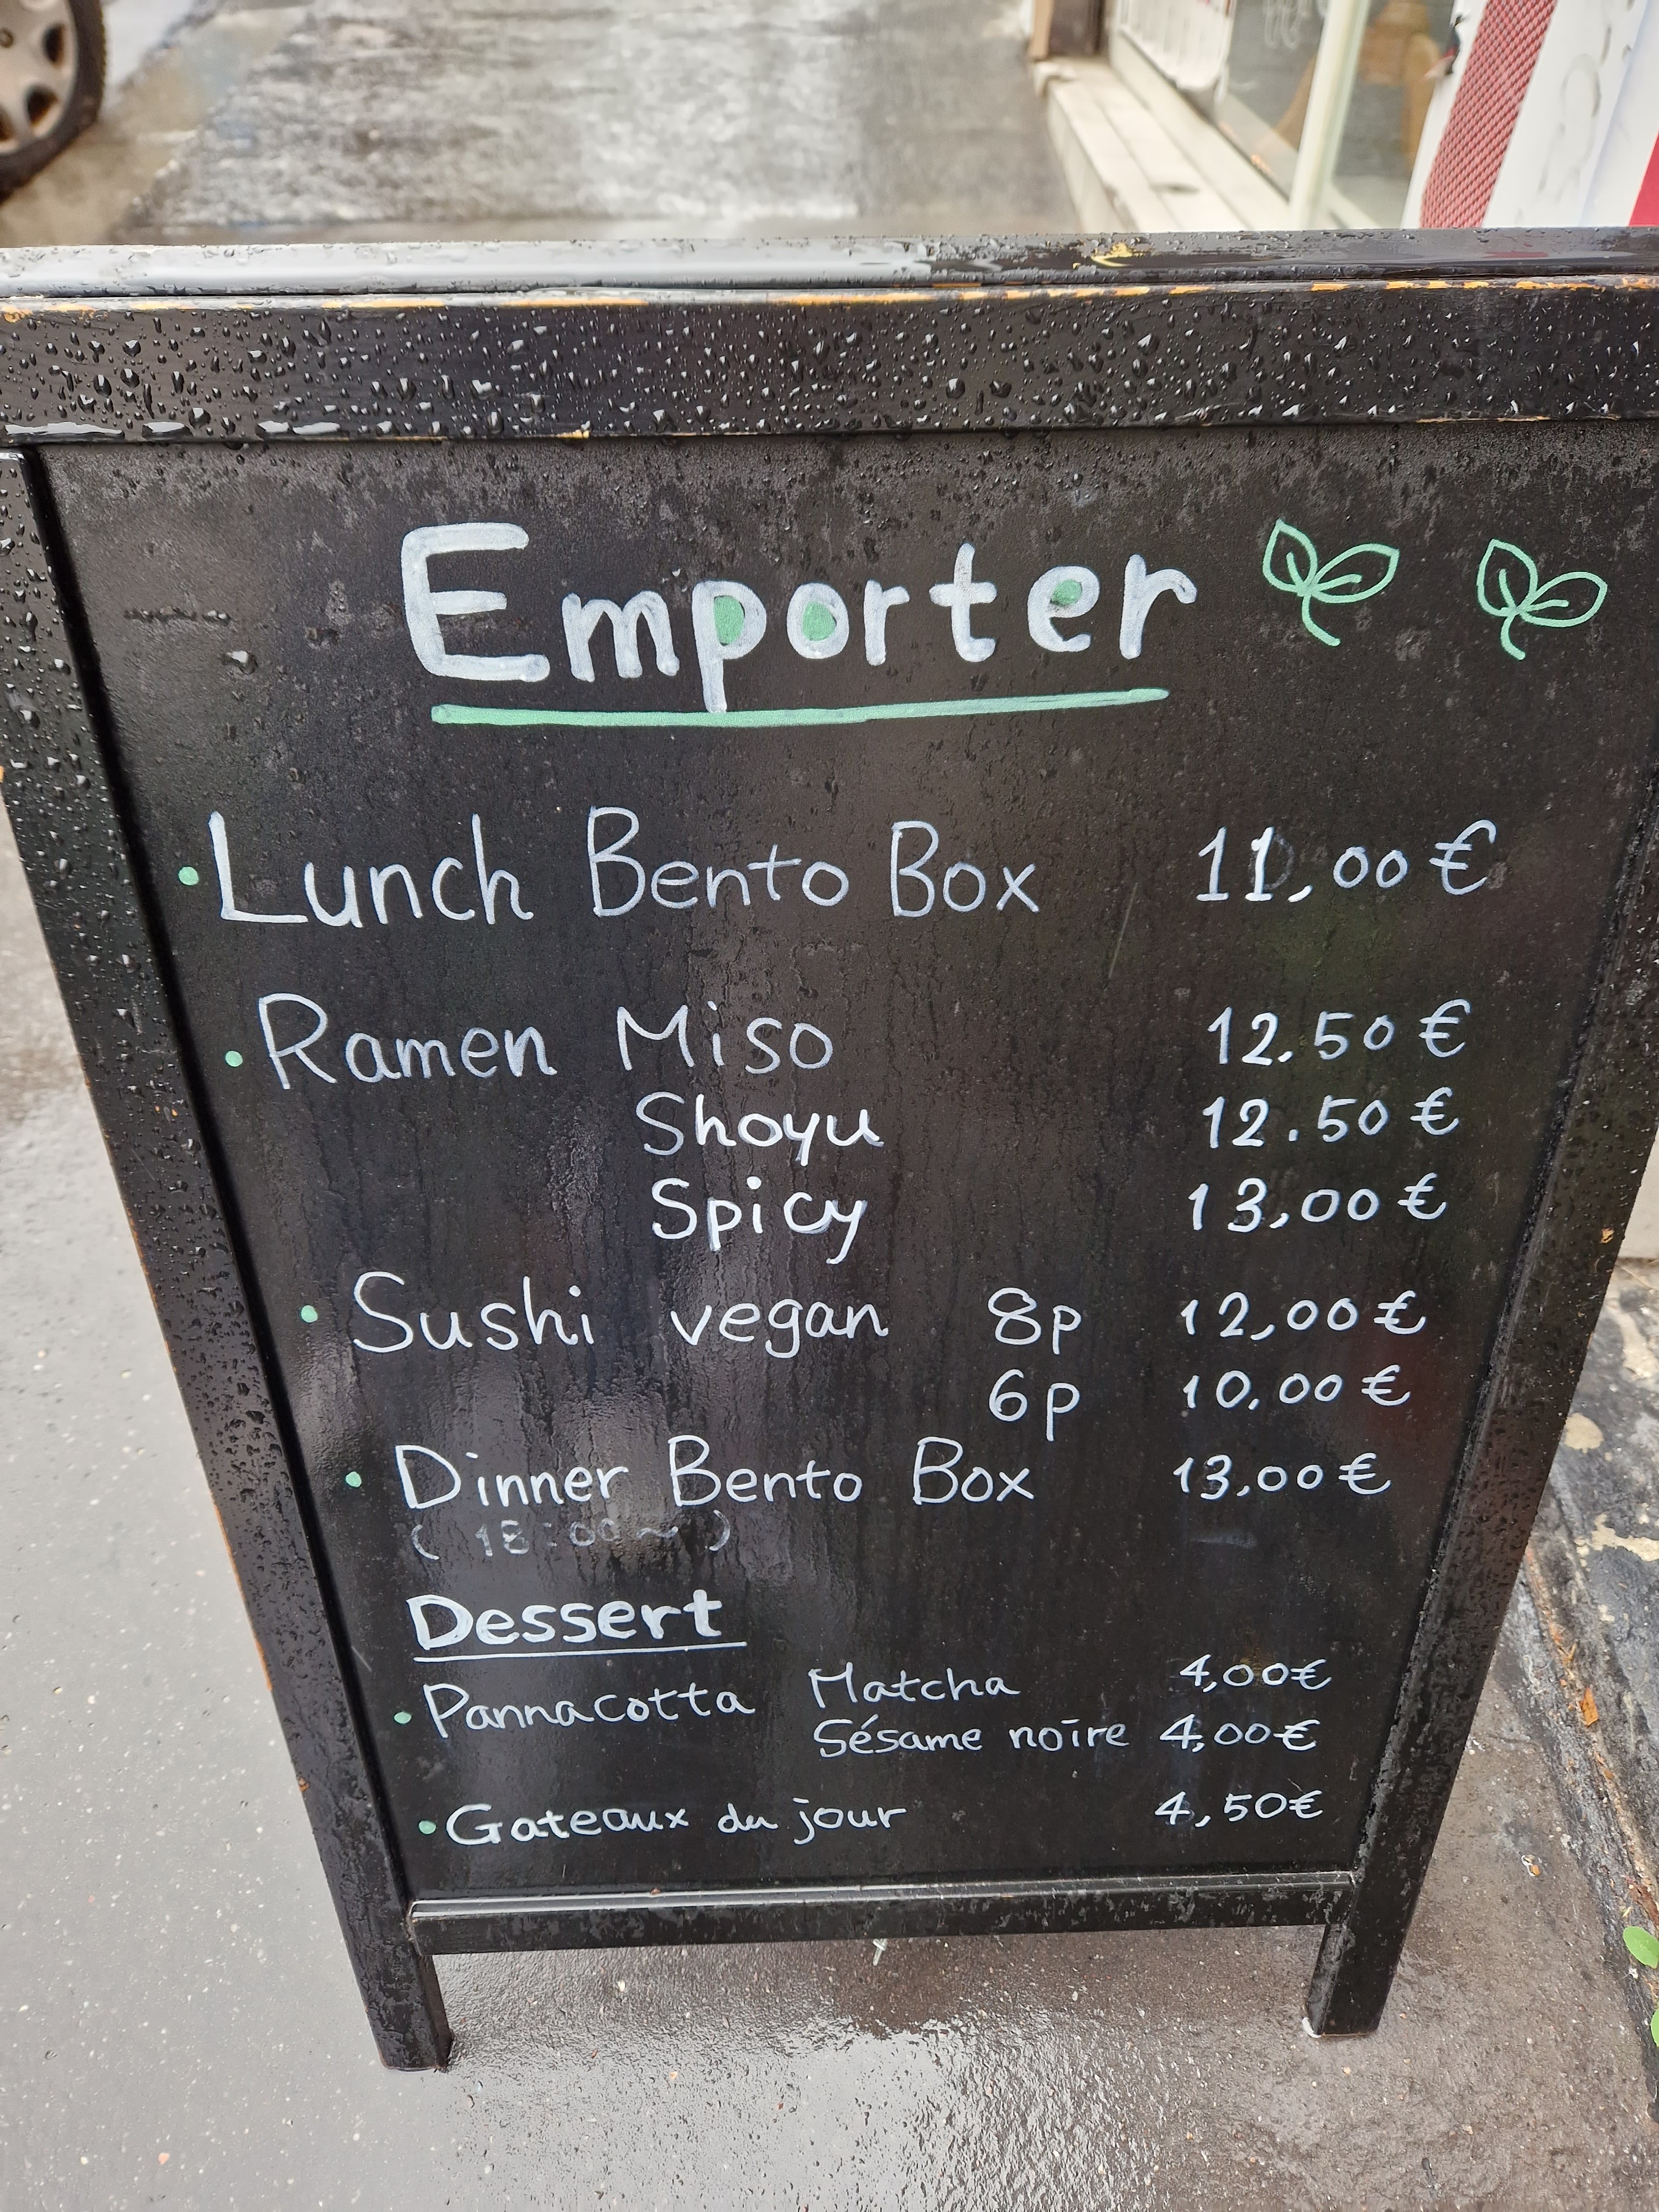 Emporter
• Lunch Bento Box 11,00 €
• Ramen Miso 12.50 €
Shoyu 12.50 €
Spicy 13,00 €
• Sushi vegan 8p 12,00 €
6p 10,00 €
• Dinner Bento Box 13,00 €
( 18:00 ~ )
Dessert
• Pannacotta Matcha 4,00€
Sésame noire 4,00€
• Gateaux du jour 4,50€